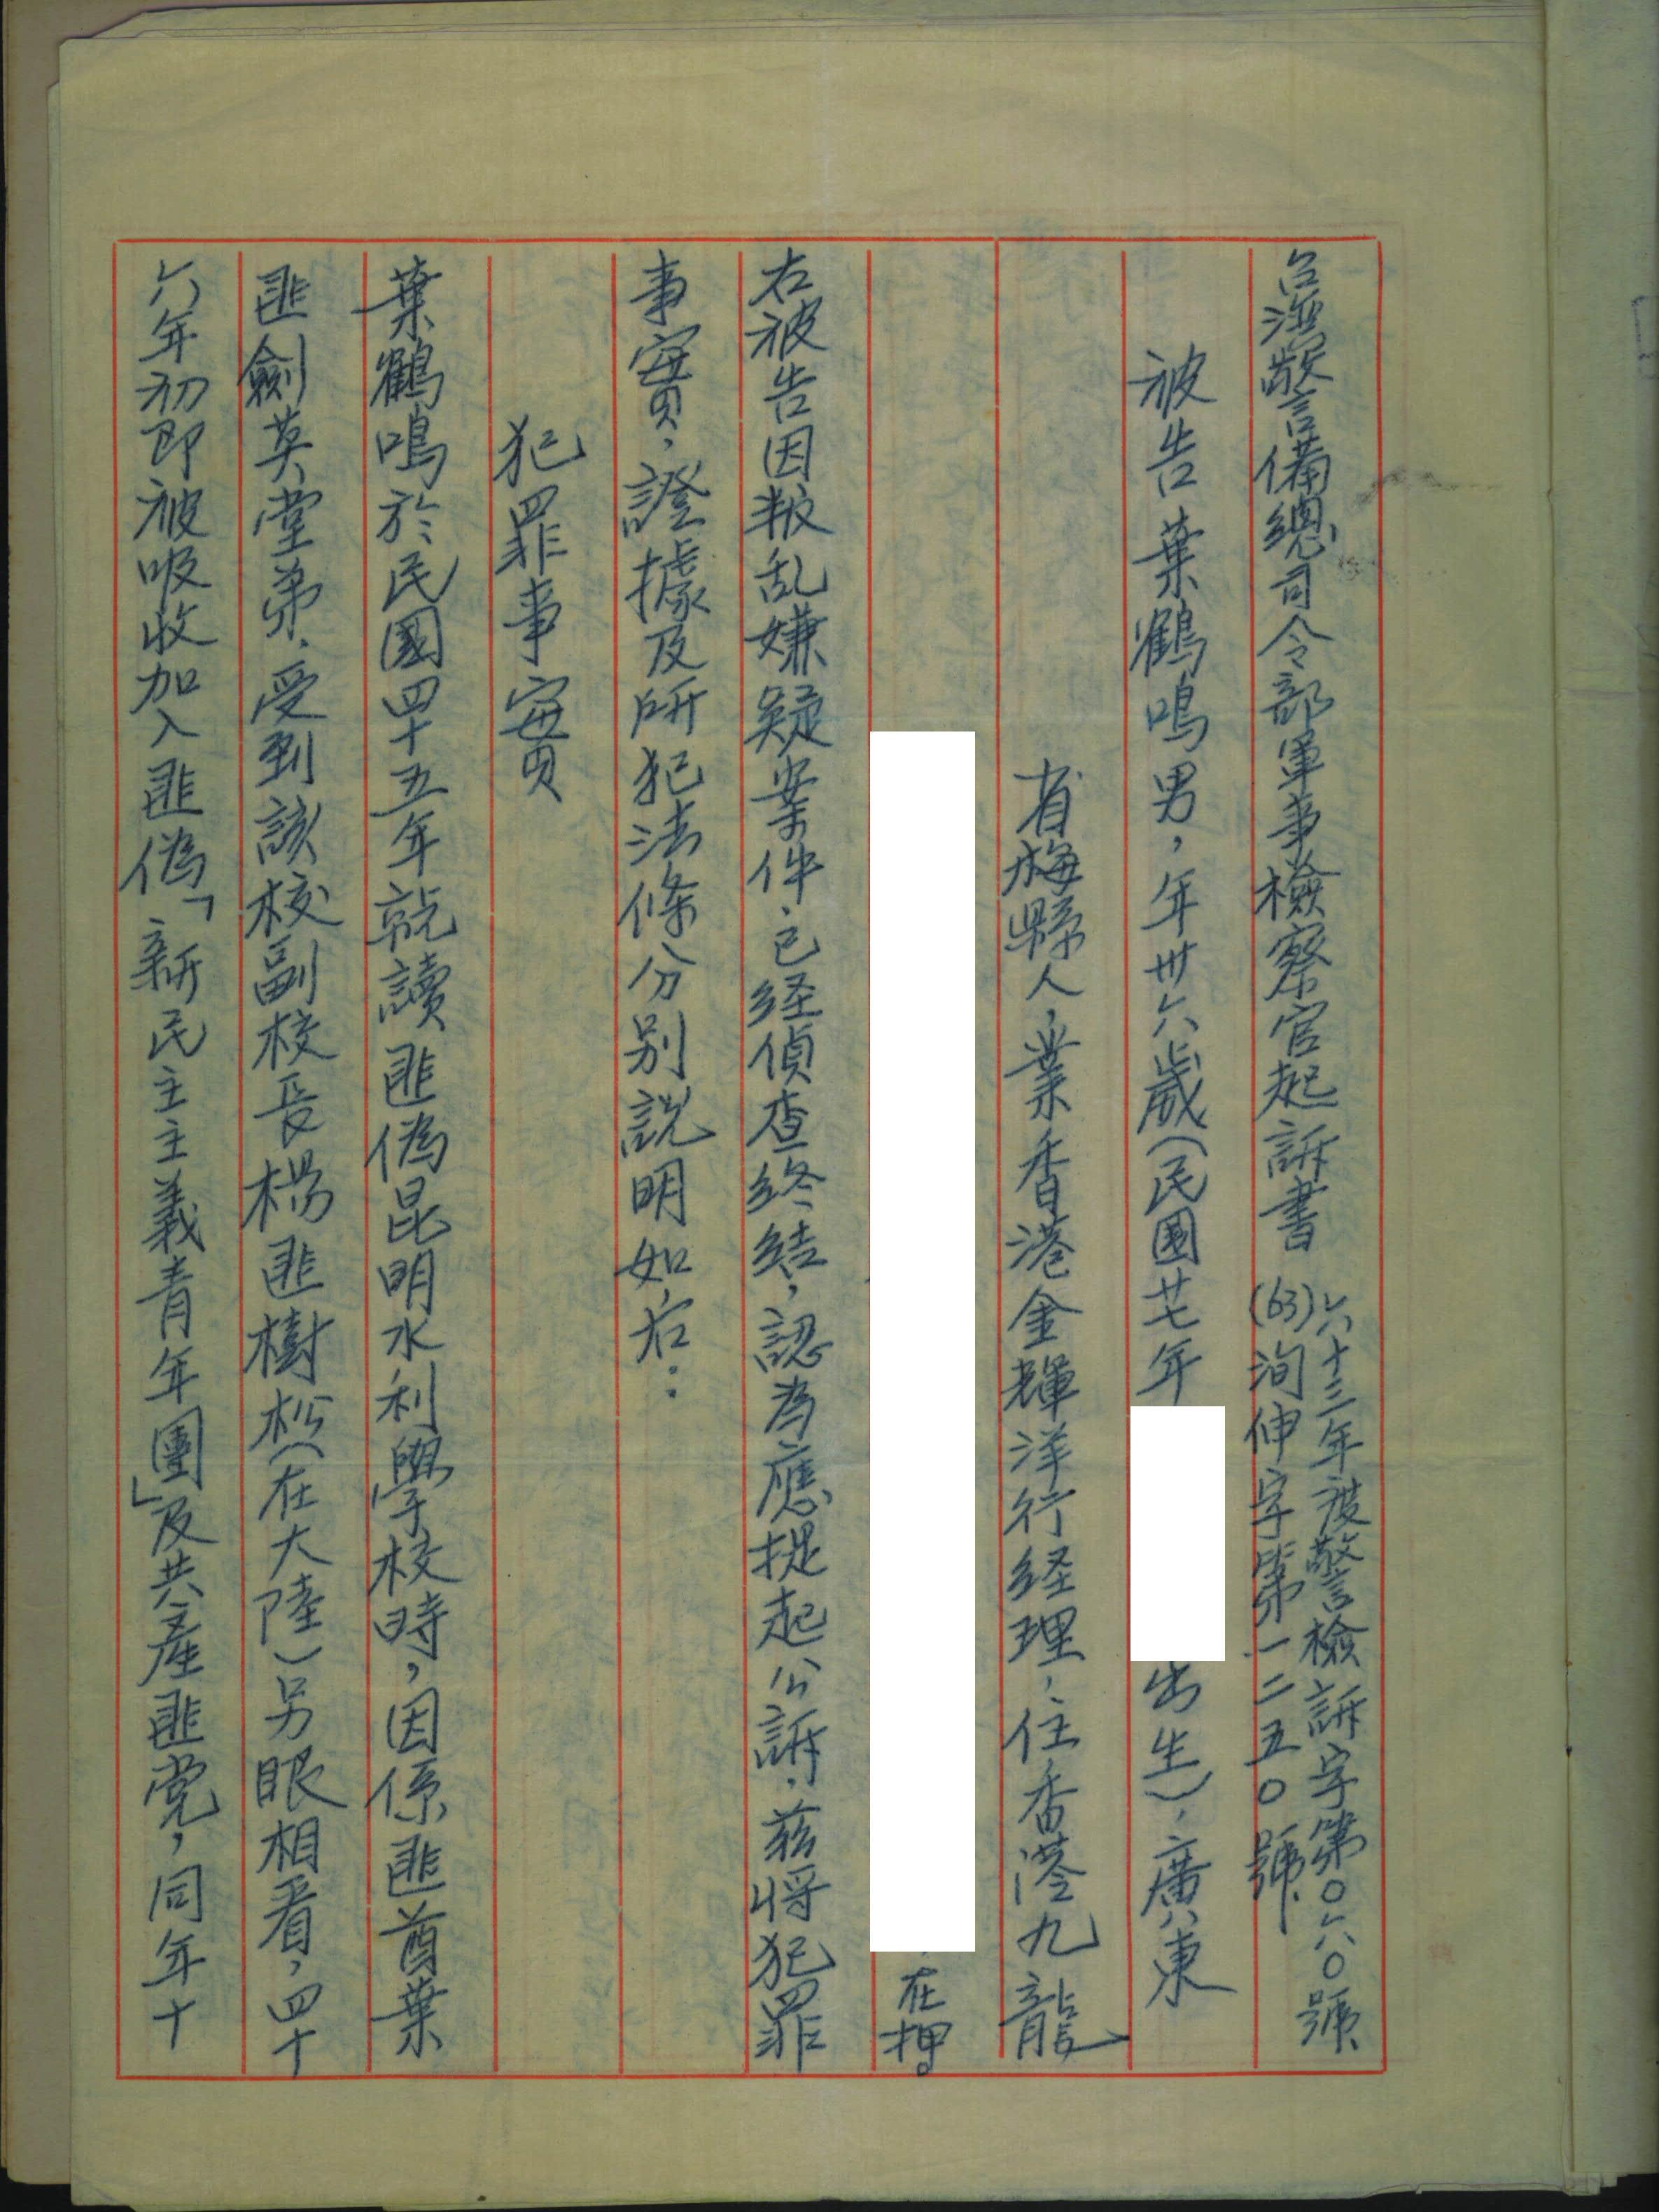 台灣警備總司令部軍事檢察官起訴書
六十三年度警檢訴字第○六○號
(63)洵伸字第一二五○號
被告葉鶴鳴男，年卅六歲（民國廿七年
出生），廣東
省梅縣人，業香港金輝洋行経理，住香港九龍
在押。
右被告因叛乱嫌疑案件已経偵查終結，認為應提起公訴，茲将犯罪
事實，證據及所犯法條分別説明如右：
犯罪事實
葉鶴鳴於民國四十五年就讀匪偽昆明水利學校時，因係匪酋葉
匪劍英堂弟，受到該校副校長楊匪樹松（在大陸）另眼相看，四十
六年初即被吸收加入匪偽「新民主主義青年團」及共產匪党，同年十